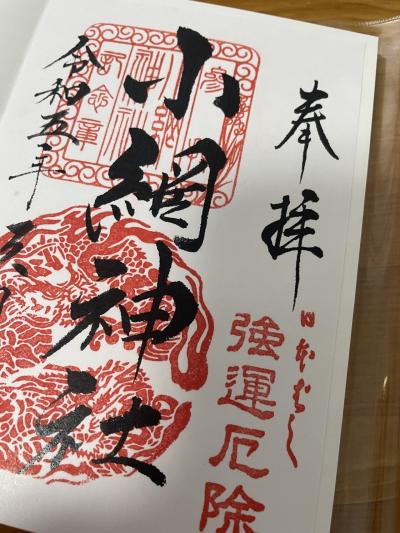 奉拝
日本ばし
強運厄除
小網神社
令和五年